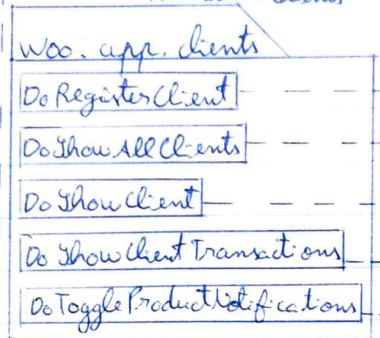 woo.app.clients
DoRegisterClient
DoShowAllClients
DoShowClient
DoShowClientTransactions
DoToggleProductNotifications